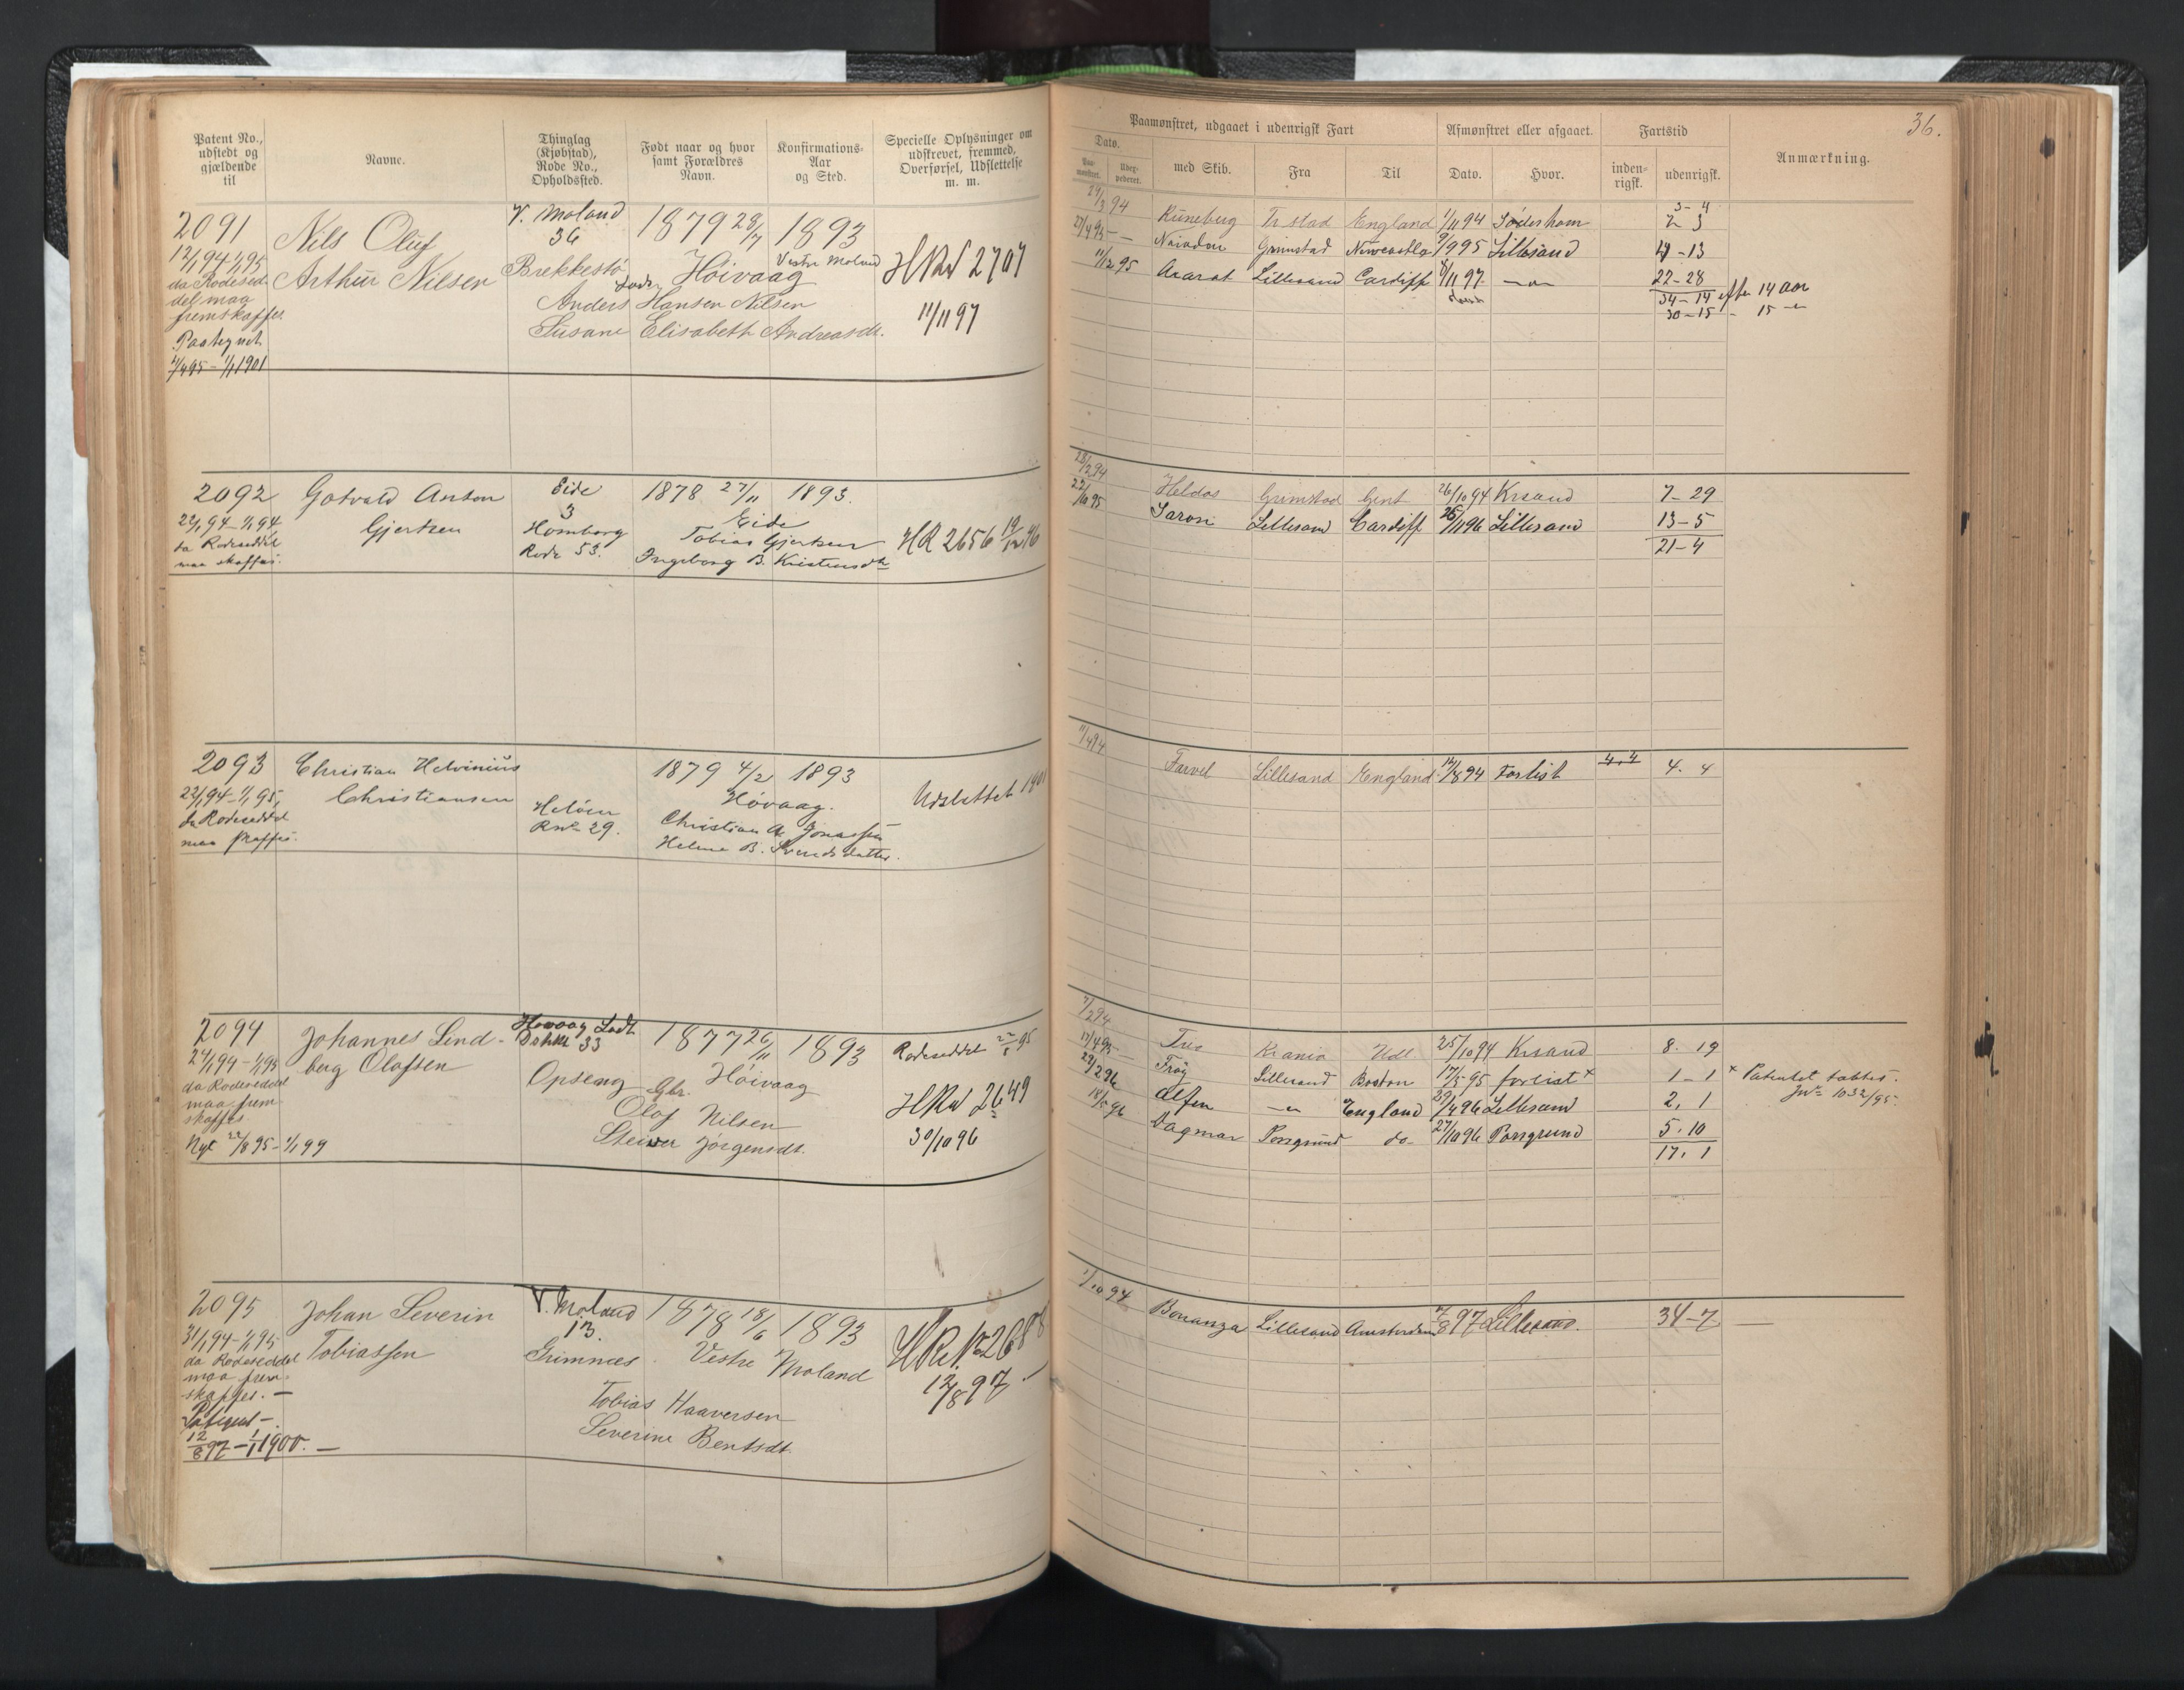 Patent No., udstedt og gjældende til
Navne.
Thinglag (Kjøbstad), Rode No., Opholdssted.
Født naar og hvor samt Forældres Navn.
Konfirmations-Aar og Sted.
Specielle Oplysninger om udskrevet, fremmed, Overførsel, Udslettelse m. m.
Paamønstret, udgaaet i udenrigsk Fart
Dato.
med Skib.
Fra
Til
Afmønstret eller afgaaet.
Dato.
Hvor.
Fartstid
inden-rigsk.
udenrigsk.
Anmærkning.
36.
2091
12/1 94 1/1 95
da Rodesed-
del maa
fremskaffes.
Paategnet
1/1 1901
Nils Oluf
Arthur Nilsen
V. Moland
36
Brekkestø
1879 28/7
Høivaag
1893
Vestre Moland
Anders Hansen Nilsen
Susane Elisabeth Andreasdt.
11/11 97
94 England 1/11 94 Søderham
3-4
2 3
Grimstad Newcastle Lillesand 13
11/12 95 Ararat Lillesand Cardiff 97
22-28
34-14 efter 14 aar
30-15 - 15 -"-
2092
22/1 94 - 1/1 94
da Rodeseddel
maa skaffes.
Gotvald Anton
Gjertsen
Eide
3
Homborg
Rode 53.
1878 27/11
Eide
1893.
Tobias Gjertsen
Ingeborg B. Kristensdt
HR 2656 19/12 96
28/2 94 Heldos Grimstad Gent 26/10 94 Krsand 7-29
22/10 95 Saron Lillesand Cardiff 26/11 96 Lillesand 13-5
21-4
2093
22/1 94 - 1/1 95,
da Rodeseddel
maa skaffes.
Christian Helvinius
Christiansen
29.
1879 4/2
Høvaag.
1893
Christian A. Jonassen
Helene B. Svendsdatter.
Udslettet 1901
11/4 94 Farvel Lillesand England 8 94 Forlist 4.4 4. 4
2094
24/1 94 - 1/1 95
da Rodeseddel
maa frem-
skaffes
Nyt 22/8 95 - 1/1 99
Johannes Lind-
berg Olafsen
33
Opseng
1877 26/11
Høivaag
1893
Olaf Nilsen
Jørgensdt.
Rodeseddel 95
2649
30/10 96
7/2 94 Krania Udl 25/10 94 Krsand 8. 19
17/4 95 Frøy Lillesand Boston 17/5 95 forlist x 1-1 x Patentet tabtes.
1032/95.
29/2 96 Alfen -"- England 29/4 96 Lillesand 2, 1
18/5 96 Dagmar Porsgrund do 27/10 96 Porsgrund 5. 10
17, 1
2095
31/1 94 - 1/1 95
da Rodeseddel
maa frem-
skaffes. -
12/8 97 - 1/1 1900. -
Johan Severin
Tobiassen
V. Moland
13.
Grimnes
1878 18/6
Vestre Moland
1893
Tobias Haaversen
Severine Bentsdt.
12/8 97
1/10 94 Bonanza Lillesand Amsterdam 7/8 97 Lillesand. 34-7